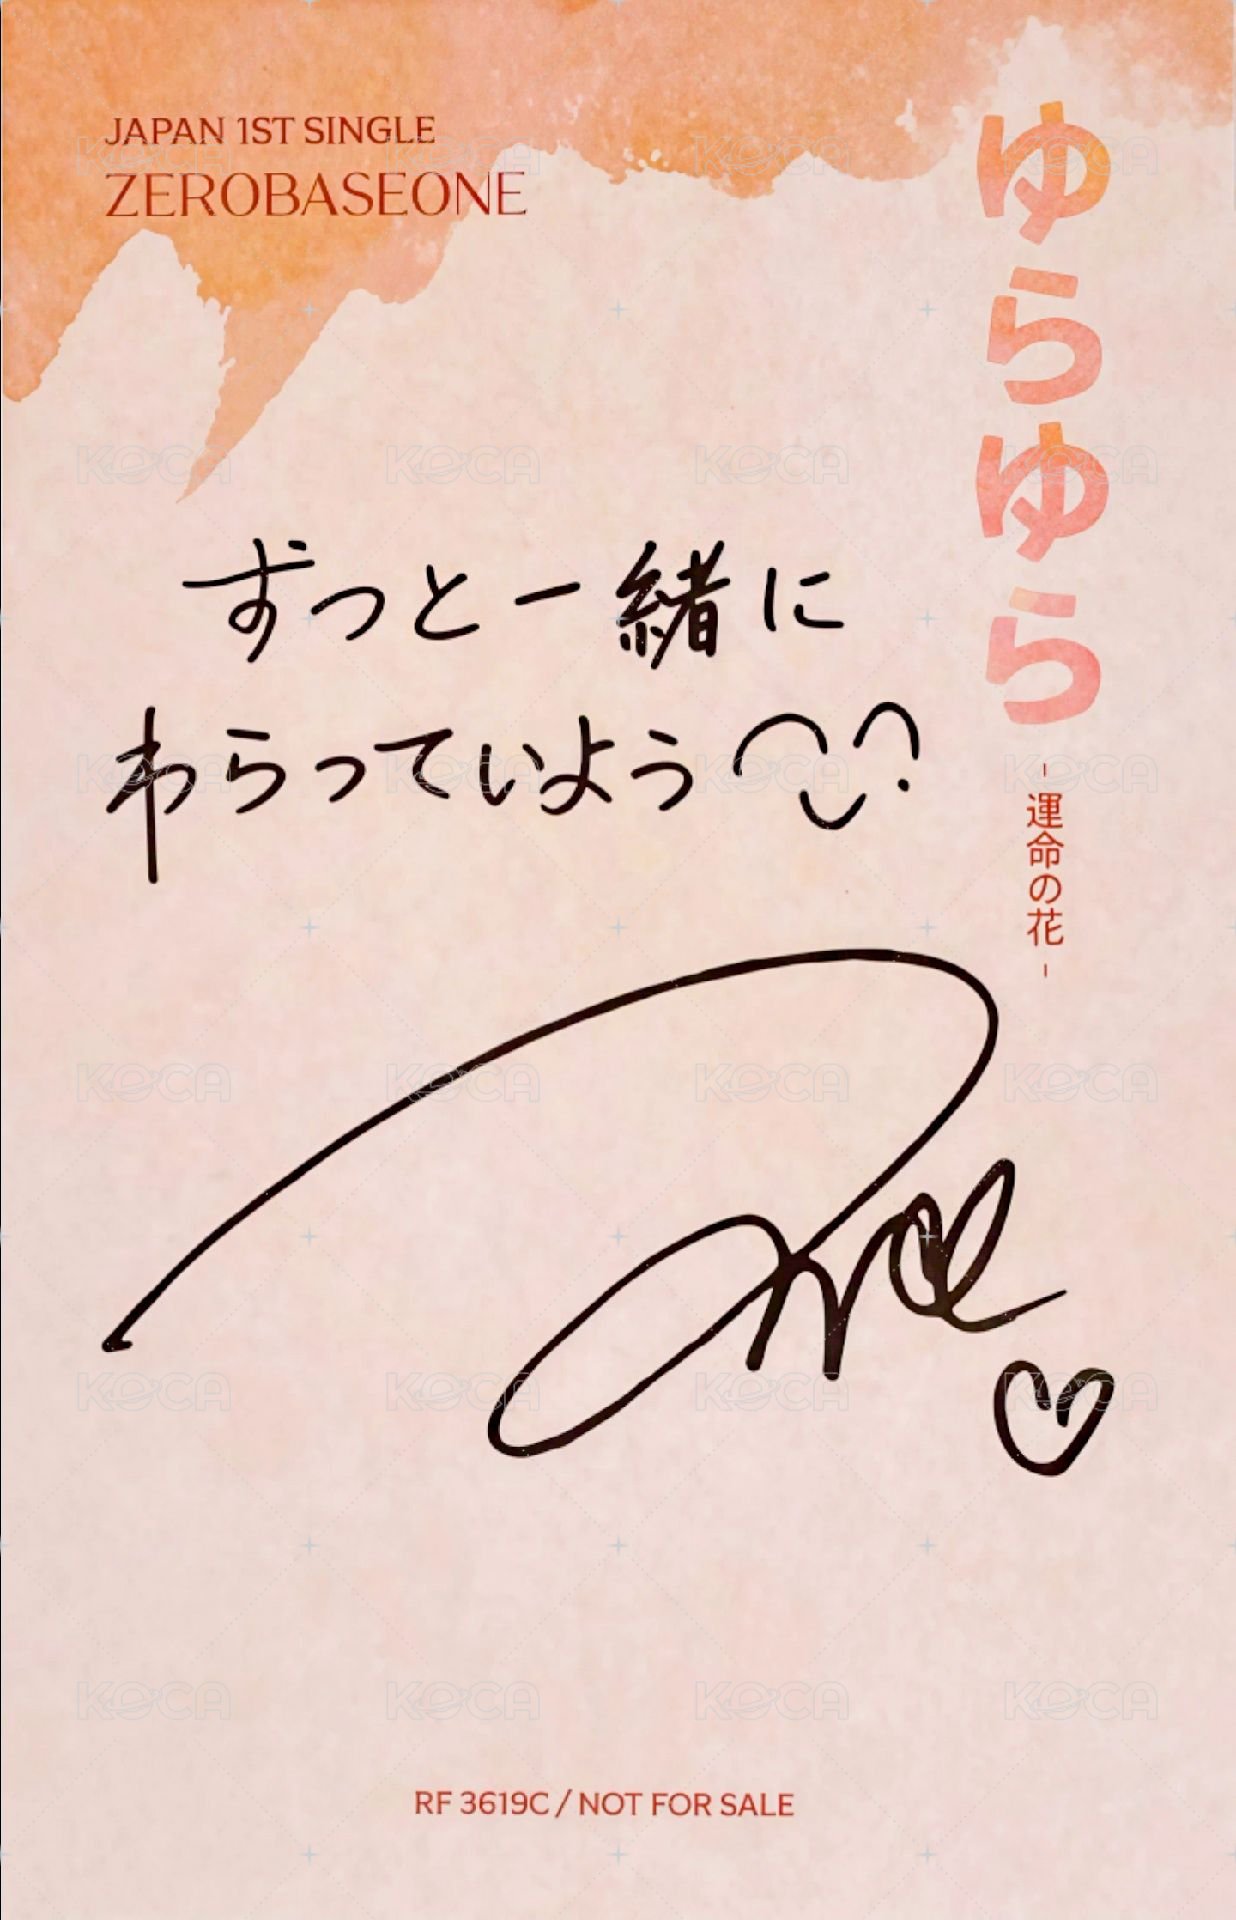 JAPAN 1ST SINGLE
ZEROBASEONE
ゆらゆら
- 運命の花 -
ずっと一緒に
わらっていよう
RF 3619C / NOT FOR SALE
KOCA